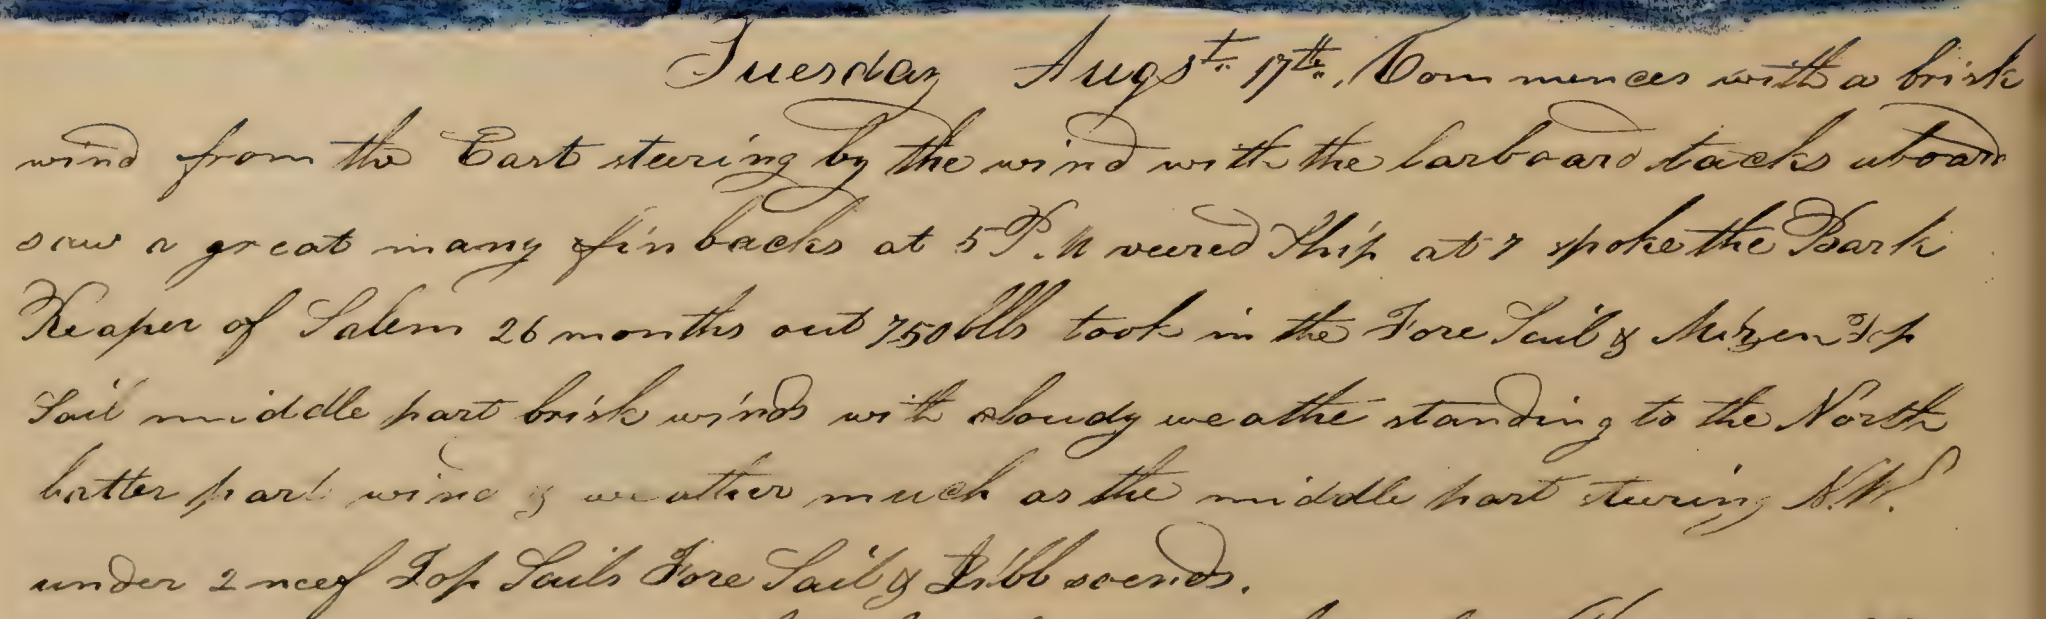 Tuesday Augst 17th, Commences with a brisk
wind from the East steering by the wind with the larboard tacks aboard
saw a great many finbacks at 5 P.M veered Ship at 7 spoke the Bark
Reaper of Salem 26 months out 750 blls took in the Fore Sail & Mizen Top
Sail middle part brisk winds with cloudy weathe standing to the North
latter part wind & weather much as the middle part steering N.W.
under 2 reef Top Sails Fore Sail & Jibb soends.